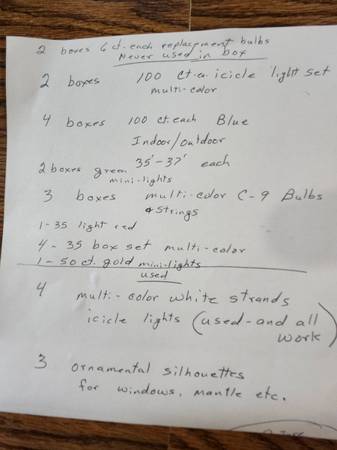 2 boxes 6 ct. each replacement bulbs
Never used in box
2 boxes 100 ct. ea. icicle light set
multi-color
4 boxes 100 ct. each Blue
Indoor/outdoor
35'-37' each
2 boxes green
mini-lights
3 boxes multi-color C-9 Bulbs
& Strings
1-35 light red
4-35 box set multi-color
1-50 ct. gold mini-lights
used
4 multi-color white strands
icicle lights (used-and all
work)
3 ornamental silhouettes
for windows, mantle etc.